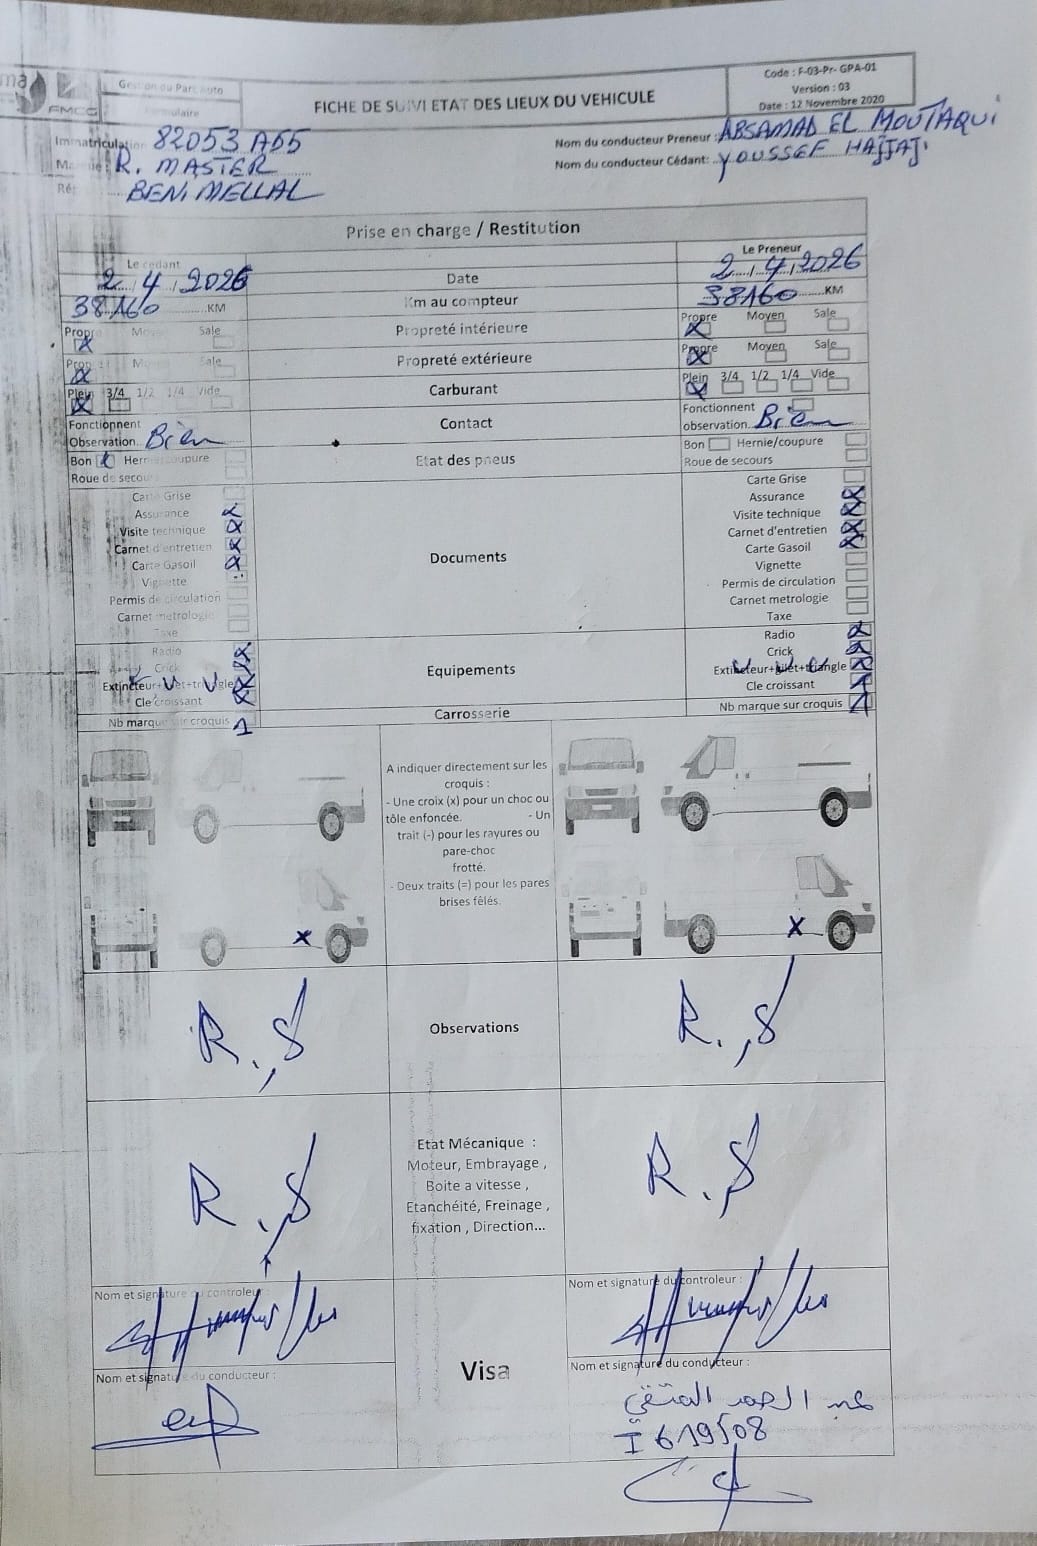 ma
FMCG
Gestion du Parc Auto
Formulaire
FICHE DE SUIVI ETAT DES LIEUX DU VEHICULE
Code : F-03-Pr- GPA-01
Version : 03
Date : 12 Novembre 2020
Immatriculation 82053 A55
R. MASTER
BENI MELLAL
Nom du conducteur Preneur : ABSAMAD EL MOUTAQUI
Nom du conducteur Cédant: YOUSSEF HAJJAJI
Prise en charge / Restitution
Le cédant
Le Preneur
2 / 4 / 2026
Date
2 / 4 / 2026
38160 KM
Km au compteur
38160 KM
Propre Moyen Sale
Propreté intérieure
Propre Moyen Sale
Propreté extérieure
Propre Moyen Sale
Plein 3/4 1/2 1/4 Vide
Carburant
Plein 3/4 1/2 1/4 Vide
Fonctionnent
Observation Bien
Contact
Fonctionnent
observation Bien
Bon x Hernie/coupure
Roue de secours
Etat des pneus
Bon Hernie/coupure
Roue de secours
Carte Grise
Assurance x
Visite technique x
Carnet d'entretien x
Carte Gasoil x
Vignette
Permis de circulation
Carnet metrologie
Taxe
Documents
Carte Grise
Assurance x
Visite technique x
Carnet d'entretien x
Carte Gasoil x
Vignette
Permis de circulation
Carnet metrologie
Taxe
Radio x
Crick x
Extincteur+gilet+triangle x
Cle croissant x
Nb marque sur croquis 1
Equipements
Radio x
Crick x
Extincteur+gilet+triangle x
Cle croissant
Nb marque sur croquis 1
Carrosserie
A indiquer directement sur les
croquis :
- Une croix (x) pour un choc ou
tôle enfoncée. - Un
trait (-) pour les rayures ou
pare-choc
frotté.
- Deux traits (=) pour les pares
brises fêlés.
x
x
R.,S
Observations
R.,S
R.,S
Etat Mécanique :
Moteur, Embrayage ,
Boite a vitesse ,
Etanchéité, Freinage ,
fixation , Direction...
R.,S
Nom et signature du controleur :
Nom et signature du controleur :
Visa
Nom et signature du conducteur :
Nom et signature du conducteur :
عبد الصمد المتقي
I 619508